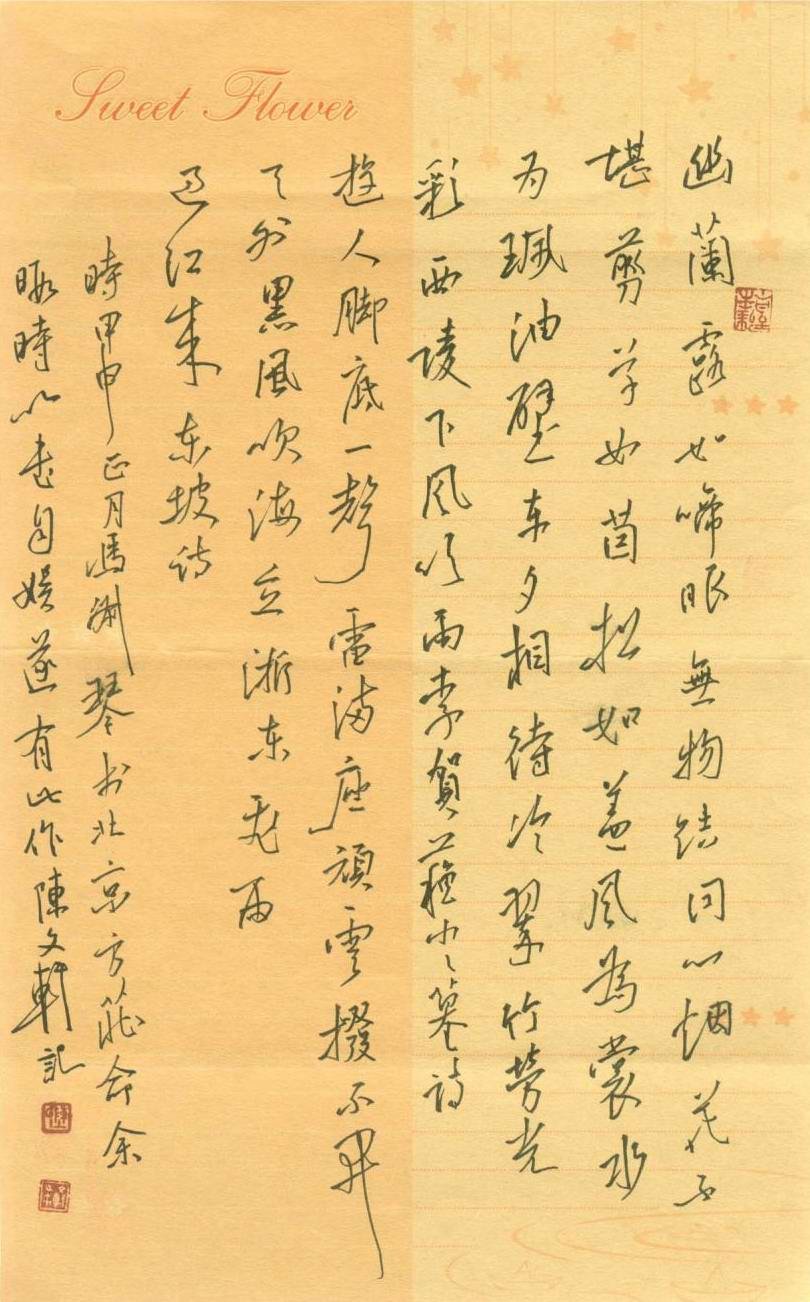 Sweet Flower
幽蘭露如啼眼無物結同心烟花不
堪剪草如茵松如盖風為裳水
为珮油壁车夕相待冷翠竹勞光
彩西陵下风吹雨李賀蘓小小墓詩
遊人脚底一聲雷满座頑雲撥不開
天外黑風吹海立浙东飛雨
过江来东坡诗
時甲申正月馮琴书北京方莊命余
暇時以書自娱遂有此作陳文軒記